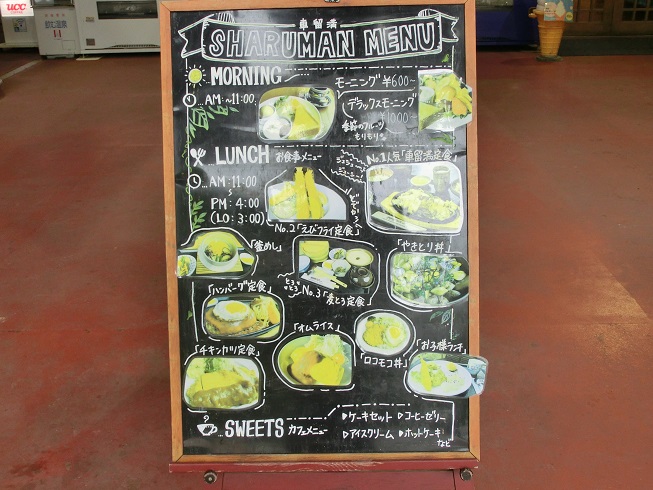 ucc
車留満
SHARUMAN MENU
MORNING
モーニング ¥600~
...AM:~11:00.
デラックスモーニング
¥1000~
季節のフルーツ
もりもり。
LUNCH お食事メニュー
No.1人気「車留満定食」
...AM:11:00
~
PM:4:00
(LO:3:00)
ジュジュ
ジューシー!
どでかっ
No.2「えびフライ定食」
「釜めし」
「やきとり丼」
とろ
とろ
No.3「麦とろ定食」
「ハンバーグ定食」
「オムライス」
「ロコモコ丼」
「お子様ランチ」
「チキンカツ定食」
...SWEETS カフェメニュー
▷ケーキセット ▷コーヒーゼリー
▷アイスクリーム ▷ホットケーキ
など